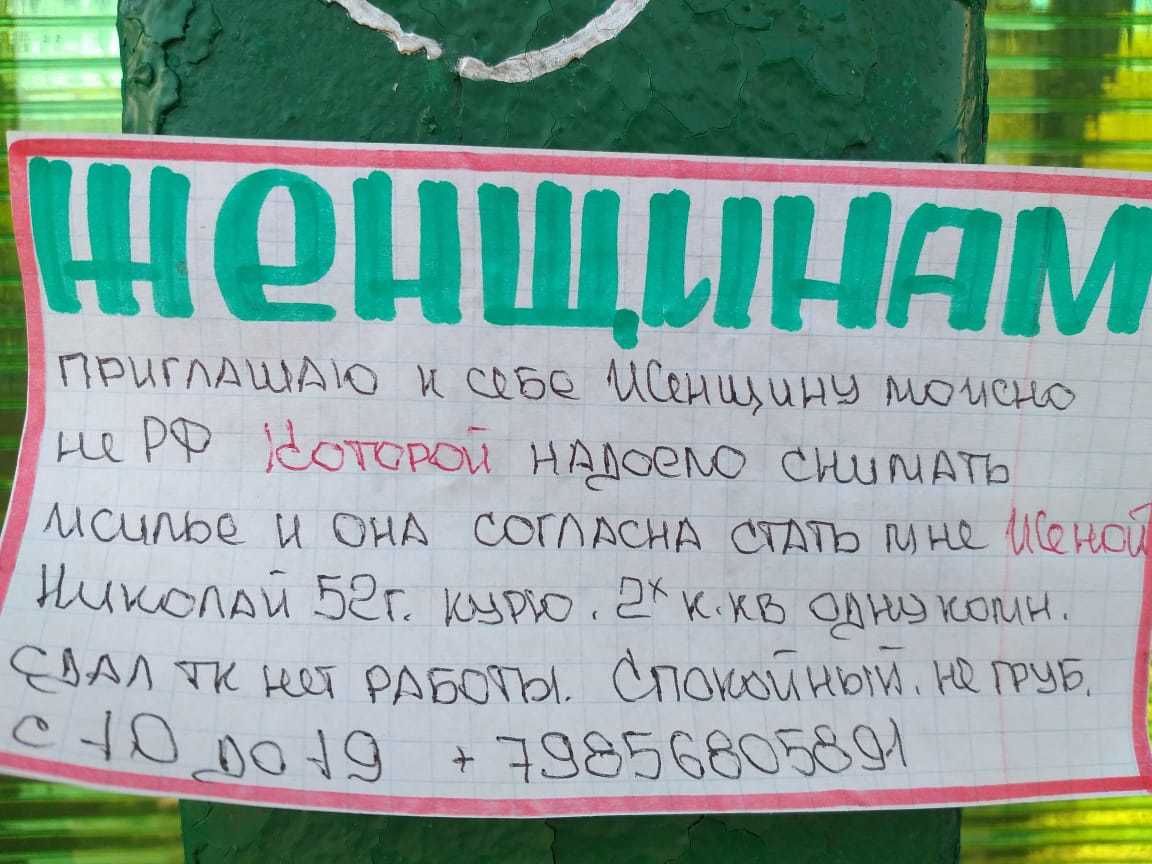 ЖЕНЩИНАМ
ПРИГЛАШАЮ К СЕБЕ ЖЕНЩИНУ МОЖНО
НЕ РФ КОТОРОЙ НАДОЕЛО СНИМАТЬ
ЖИЛЬЕ И ОНА СОГЛАСНА СТАТЬ МНЕ ЖЕНОЙ
НИКОЛАЙ 52г. КУРЮ. 2х К.КВ ОДНУ КОМН.
СДАЛ ТК НЕТ РАБОТЫ. СПОКОЙНЫЙ. НЕ ГРУБ.
С 10 ДО 19 + 79856805891